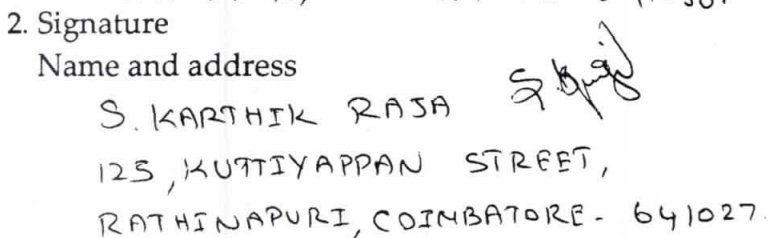 2. Signature
Name and address
S. KARTHIK RAJA
125, KUTTIYAPPAN STREET,
RATHINAPURI, COIMBATORE - 641027.